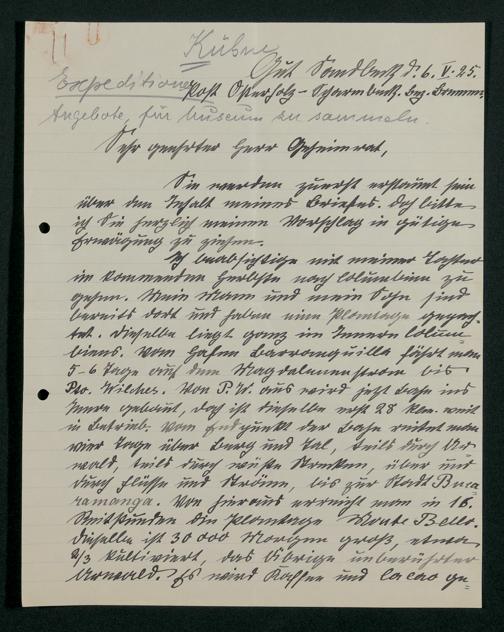 Kühne
Gut Sandbeck d. 6. V. 25.
Expeditionen
Post Osterholz-Scharmbeck. Bez. Bremen.
Angebote, für Museum zu sammeln.
Sehr geehrter Herr Geheimrat,
Sie werden zuerst erstaunt sein
über den Inhalt meines Briefes. Doch bitte
ich Sie herzlich meinen Vorschlag in gütige
Erwägung zu ziehen.
Ich beabsichtige mit meiner Tochter
im kommenden Herbste nach Columbien zu
gehen. Mein Mann und mein Sohn sind
bereits dort und haben eine Plantage gepach-
tet. Dieselbe liegt ganz im Innern Colum-
biens. Vom Hafen Barranquilla fährt man
5-6 Tage auf dem Magdalenenstrom bis
Pto. Wilches. Von P. W. aus wird jetzt Bahn ins
Innere gebaut, doch ist dieselbe erst 28 klm. weit
in Betrieb. Vom Endpunkt der Bahn reitet man
vier Tage über Berg und Tal, teils durch Ur-
wald, teils durch wüste Strecken, über und
durch Flüsse und Ströme, bis zur Stadt Buca-
ramanga. Von hieraus erreicht man in 16.
Reitstunden die Plantage Monte Bello.
Dieselbe ist 30 000 Morgen groß, etwa
2/3 kultiviert, das Übrige unberührter
Urwald. Es wird Kaffee und Cacao ge-